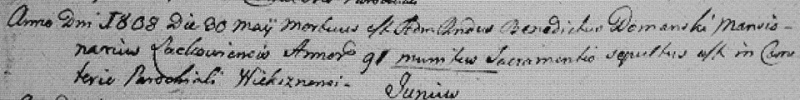 Anno Dni 1808 Die 30 Maÿ Mortuus est Adm Rndus Benedictus Domanski Mansio-
narius Lackoviensis Annor 91 munitus Sacramentis sepultus est in Cem
terio Parochiali Wieksznensi -
Junius